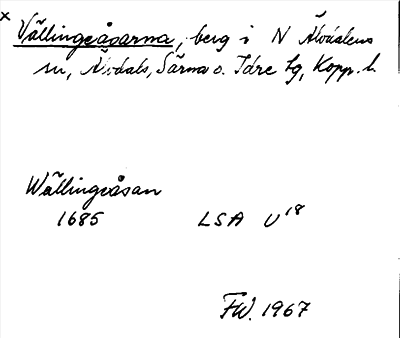 x Vällingeåsarna, berg i N Älvdalens
sn, Älvdals, Särna o. Idre tg, Kopp. l.
Wällingåsan
1685 LSA U18
FW. 1967